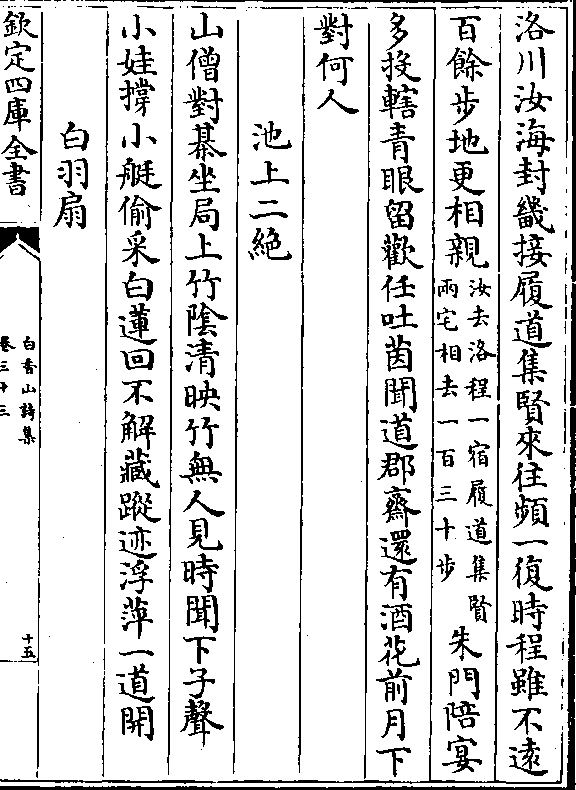 洛川汝海封畿接履道集賢來往頻一復時程雖不遠
百餘步地更相親汝去洛程一宿履道集賢兩宅相去一百三十步朱門陪宴
多投轄青眼留歡任吐茵聞道郡齋還有酒花前月下
對何人
池上二絶
山僧對棊坐局上竹陰清映竹無人見時聞下子聲
小娃撑小艇偷采白蓮回不解藏蹤迹浮萍一道開
白羽扇
欽定四庫全書
白香山詩集
卷三十三
十五